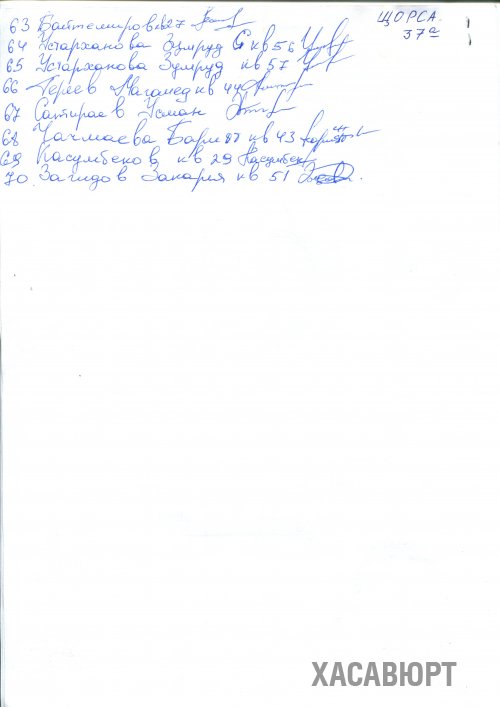 ЩОРСА
37а
63 Байтемиров 27
64 Устарханова Зумруд кв 56
65 Устарханова Зумруд кв 57
66 Гереев Магамед кв 44
67 Сатираев Усман
68 кв 43
69 Касумбекова кв 29 Касумбек
70 Загидов Закарья кв 51
ХАСАВЮРТ